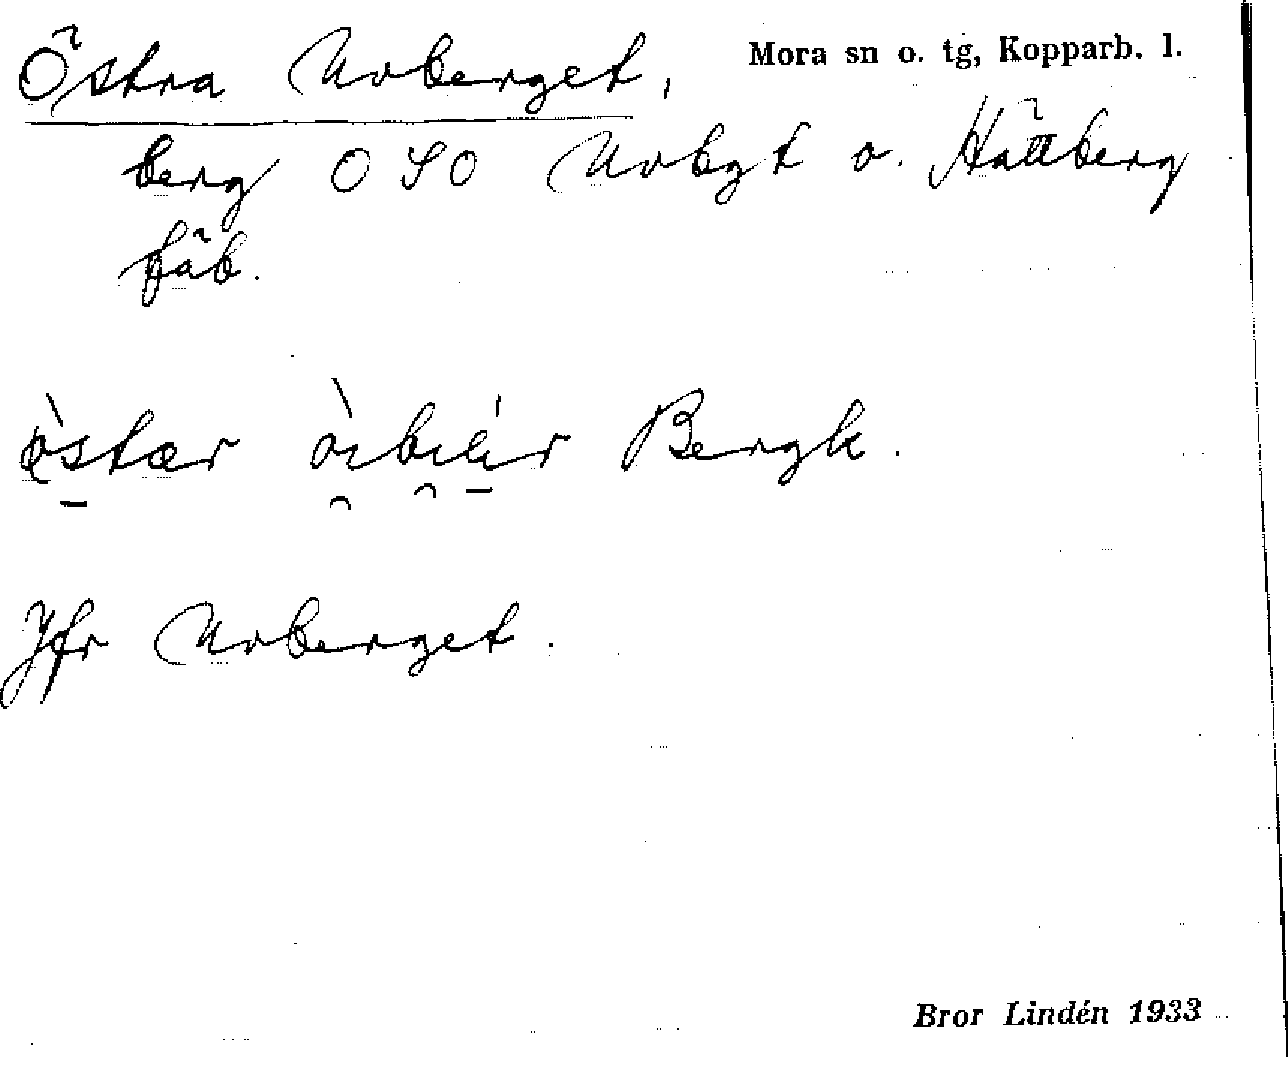 Östra Urberget,
Mora sn o. tg, Kopparb. l.
berg OSO Urbgt o. Hättberg
fäb.
Bergk.
Jfr Urberget.
Bror Lindén 1933